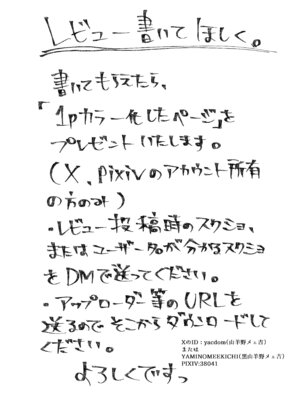 レビュー書いてほしく。
書いてもらえたら、
「1pカラー化したページ」を
プレゼントいたします。
(X、pixivのアカウント所有
の方のみ)
・レビュー投稿時のスクショ、
またはユーザー名が分かるスクショ
をDMで送ってください。
・アップローダー等のURLを
送るのでそこからダウンロードして
ください。
よろしくですっ
XのID:yacdom(山羊野メェ吉)
または
YAMINOMEEKICHI(黒山羊野メェ吉)
PIXIV:38041